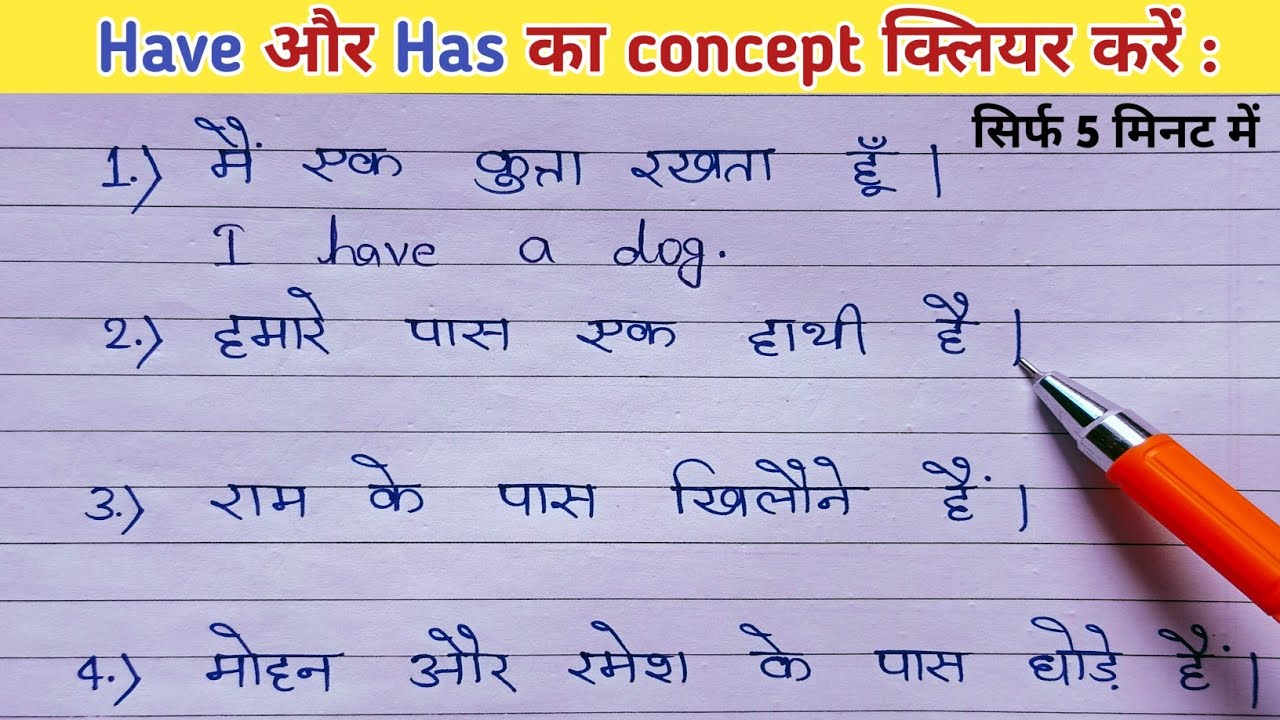 Have और Has का concept क्लियर करें :
सिर्फ 5 मिनट में
1.) मैं एक कुत्ता रखता हूँ।
I have a dog.
2.) हमारे पास एक हाथी है।
3.) राम के पास खिलौने हैं।
4.) मोहन और रमेश के पास घोड़े हैं।